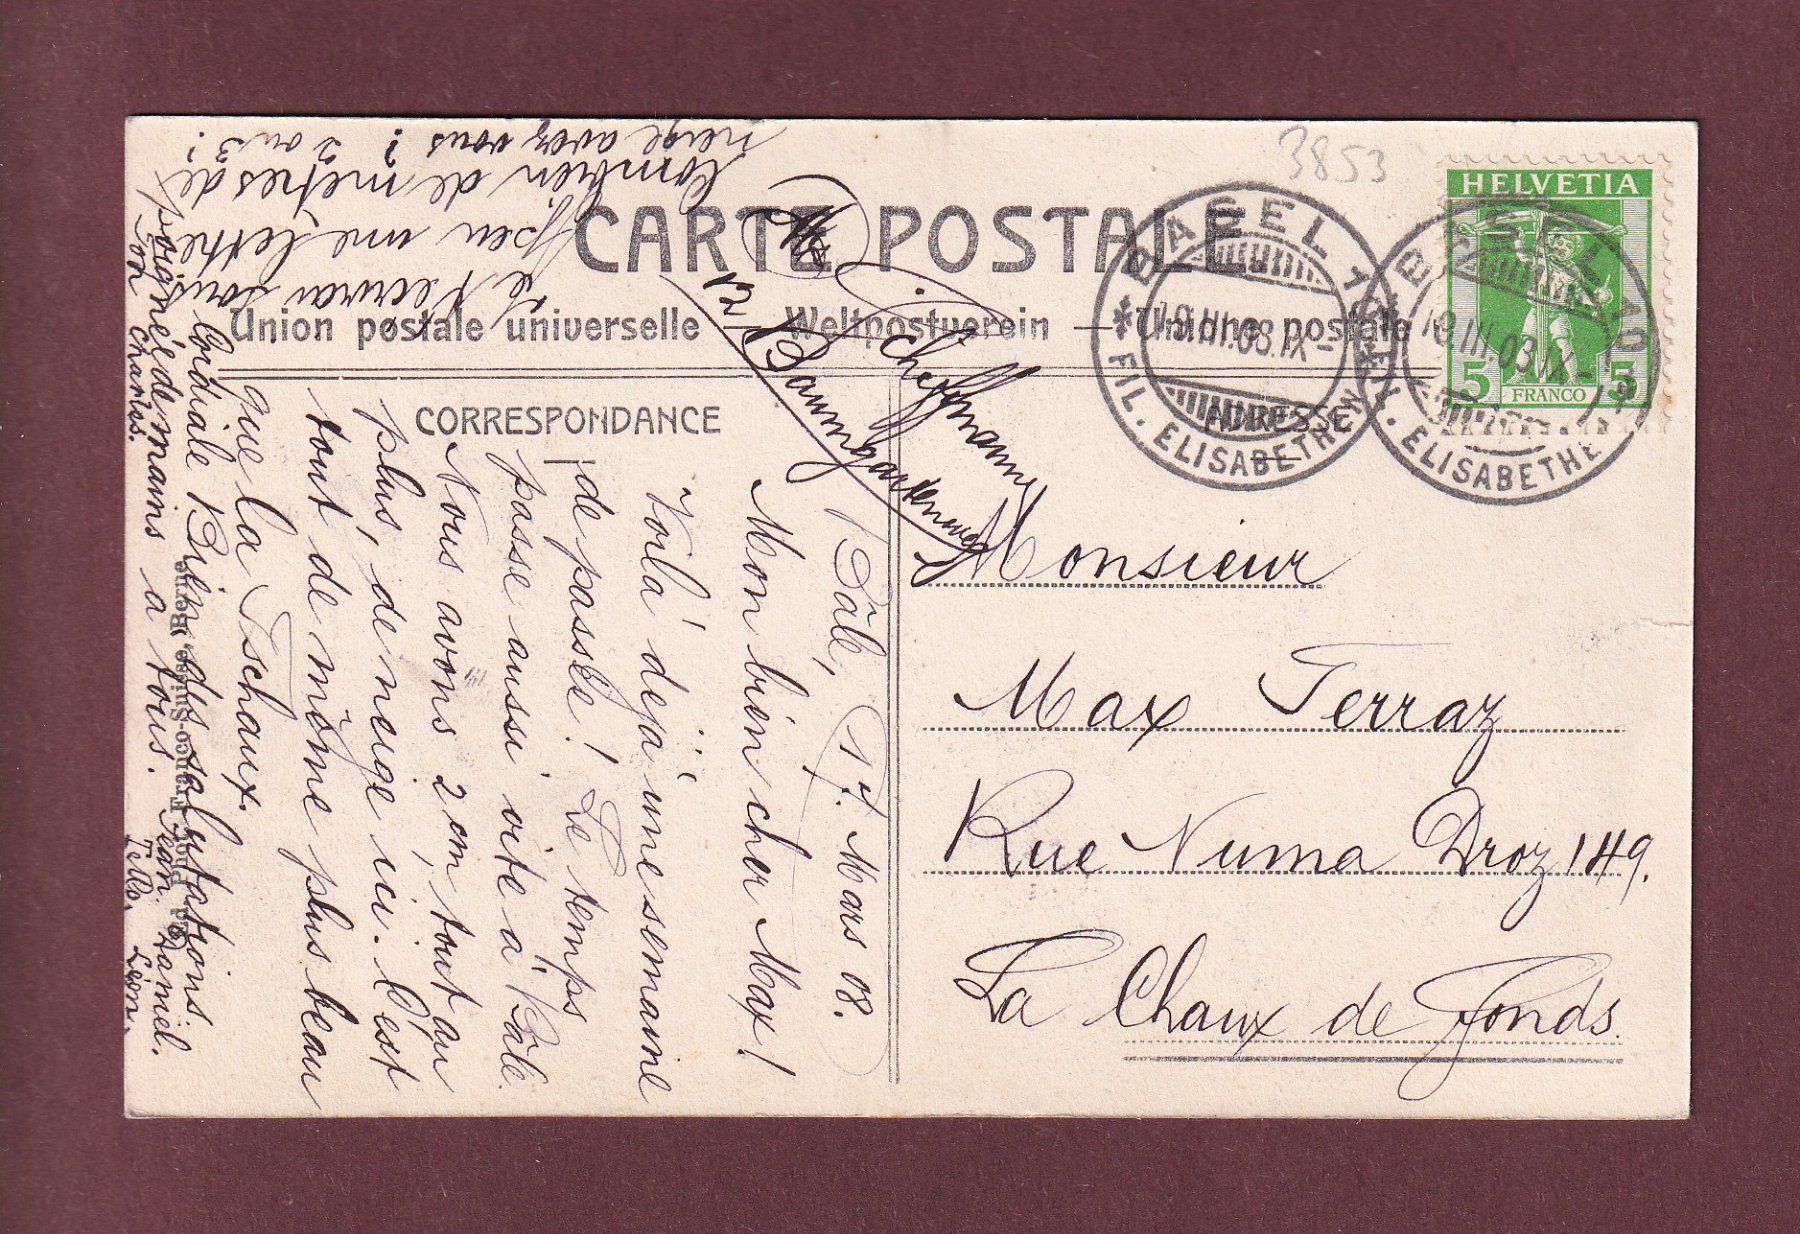 3853
HELVETIA
5 FRANCO 5
BASEL 10
19.III.08.IX-
FIL. ELISABETHEN
BASEL 10
19.III.08.IX-
FIL. ELISABETHEN
CARTE POSTALE.
Union postale universelle — Weltpostverein — Unione postale
CORRESPONDANCE
ADRESSE
Monsieur
Max Terraz
Rue Numa Droz 149.
La Chaux de Fonds.
Bâle, 17. Mars 08.
Mon bien cher Max!
Voilà déjà une semaine
de passée! Le temps
passe aussi vite à Bâle.
Nous avons 2 cm, tout au
plus, de neige ici. C'est
tout de même plus beau
que la Tschaux.
Cordiale Bien des salutations
poignée de mains à tous.
Ton Charles.
Jean. Daniel.
Tello. Léon.
Je t'écrirai sous
peu une lettre
Combien de mètres de
neige avez vous? 2 ou 3?
Scheffmann
12 Baumgartenweg
Ed. Phot. Franco-Suisse, Berne